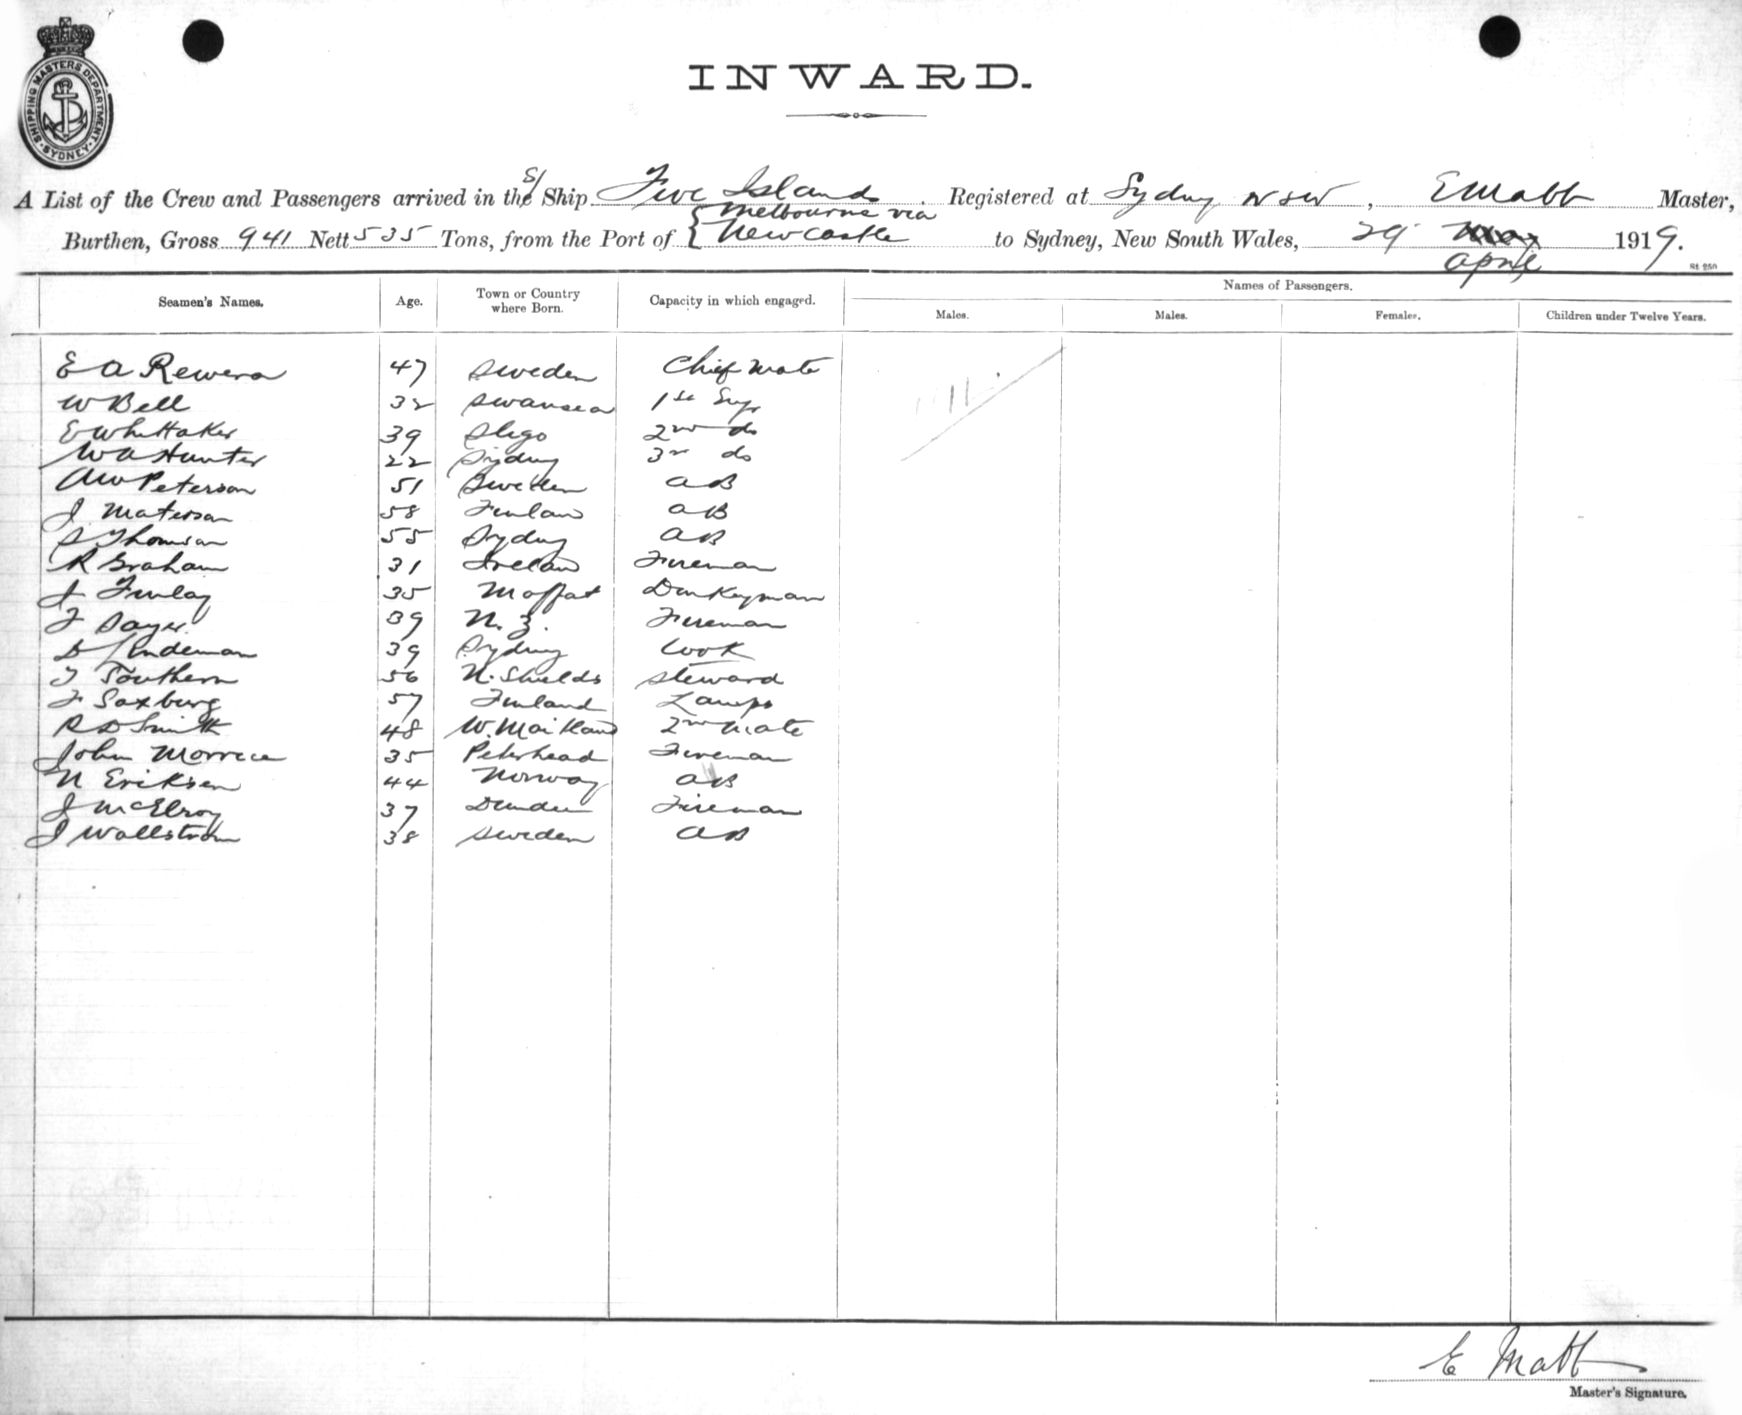 SHIPPING MASTERS DEPARTMENT
SYDNEY
INWARD.
A List of the Crew and Passengers arrived in the S/ Ship Five Islands. Registered at Sydney NSW, E Mabb Master,
Burthen, Gross 941 Nett 535 Tons, from the Port of { Melbourne via Newcastle to Sydney, New South Wales, 29 May April 1919.
St 250
Seamen's Names. Age. Town or Country where Born. Capacity in which engaged. Names of Passengers.
Males. Males. Females. Children under Twelve Years.
E A Rewera 47 Sweden Chief Mate
W Bell 32 Swansea 1st
E Whittaker 39 Sligo 2nd do
W A Hunter 22 Sydney 3rd do
A W Peterson 51 Sweden AB
J Materson 58 Finland AB
S Thomson 55 Sydney AB
R Graham 31 Ireland Fireman
J Finlay 35 Moffat Donkeyman
F Sayer 39 N.Z. Fireman
D Lindeman 39 Sydney Cook
T Southern 56 N. Shields Steward
F Saxburg 57 Finland Lamps
R D Smith 48 W. Maitland 2nd Mate
John Morrice 35 Peterhead Fireman
N Eriksen 44 Norway AB
J McElroy 37 Dundee Fireman
J Wallstrom 38 Sweden AB
E Mabb
Master's Signature.